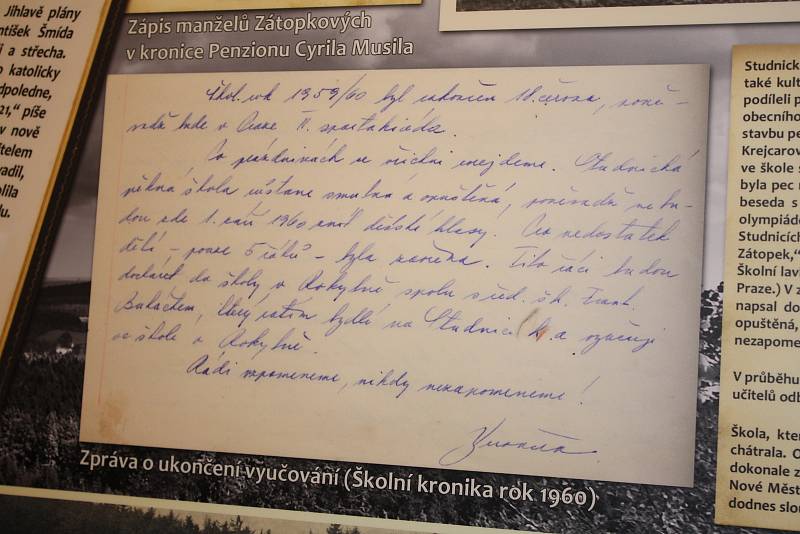 Jihlavě plány
ntišek Šmída
i a střecha.
o katolicky
dpoledne,
21,“ píše
v nově
itelem
vadil,
olila
du.
Zápis manželů Zátopkových
v kronice Penzionu Cyrila Musila
Škol. rok 1959/60 byl zakončen 18. června, poně-
vadž bude v Praze II. spartakiáda.
Po prázdninách se všichni nesejdeme. Studnická
pěkná škola zůstane smutná a opuštěná, poněvadž nebu-
dou zde 1. září 1960 znít dětské hlasy. Pro nedostatek
dětí, – pouze 5 žáků – byla zavřena. Tito žáci budou
docházet do školy v Rokytně spolu s řed. šk. Frant.
Bukáčkem, který zatím bydlí na Studnici a vyučuje
ve škole v Rokytně.
Rádi vzpomeneme, nikdy nezapomeneme!
Zpráva o ukončení vyučování (Školní kronika rok 1960)
Studnick
také kult
podíleli p
obecního
stavbu pe
Krejcarov
ve škole s
byla pec n
beseda s
olympiád
Studnicích
Zátopek,“
Školní lav
Praze.) V z
napsal do
opuštěná,
nezapome
V průběhu
učitelů odb
Škola, kter
chátrala. O
dokonale z
Nové Měst
dodnes slou